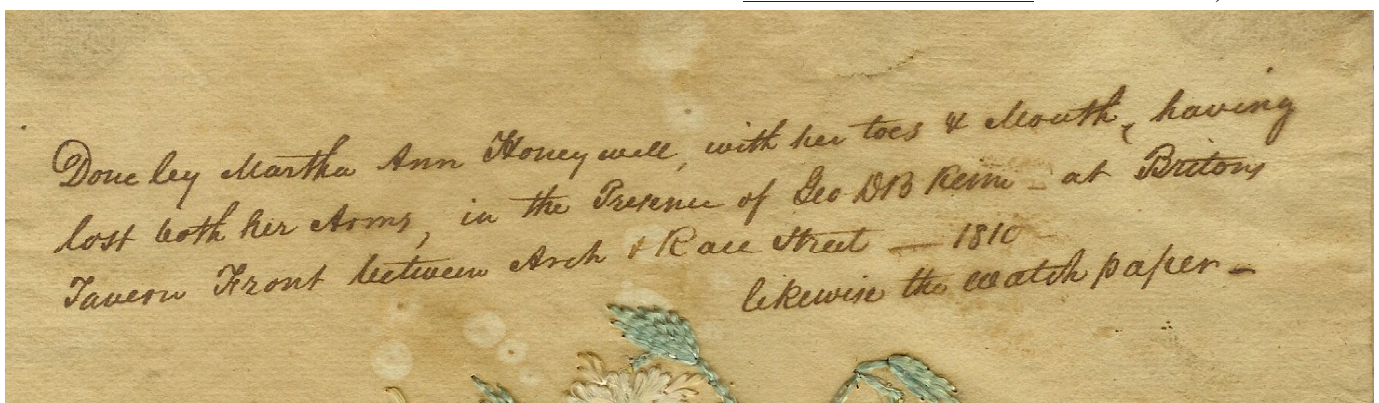 Done by Martha Ann Honeywell, with her toes & Mouth, having
lost both her Arms, in the Presence of Geo DB Keim - at Britons
Tavern Front between Arch & Race Street — 1810
likewise the watch paper -